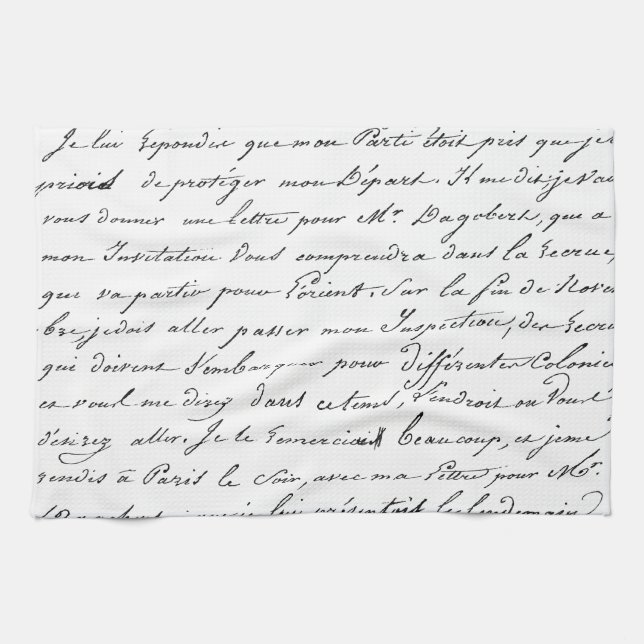 Je lui repondis que mon Parti étoit pris que je
priois de protéger mon Départ. Il me dit; je vau
vous donner une lettre pour Mr. Dagobert, que a
mon Invitation vous comprendra dans la recrue,
que va partir pour Lorient. Sur la fin de Novem
bre, je dois aller passer mon Inspection, des Recru
qui doivent s'embarquer pour différentes Colonie
et vous me direz dans ce tems, l'endroit ou vous
désirez aller. Je le remerciais beaucoup, et je me
rendis à Paris le Soir, avec ma Lettre pour Mr.
Dagobert lui présentois le lendemain